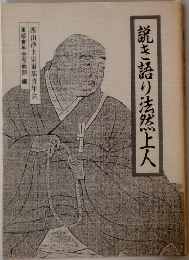 説き語り法然上人
西山浄土宗東部青年会
東部青年会布教部 編